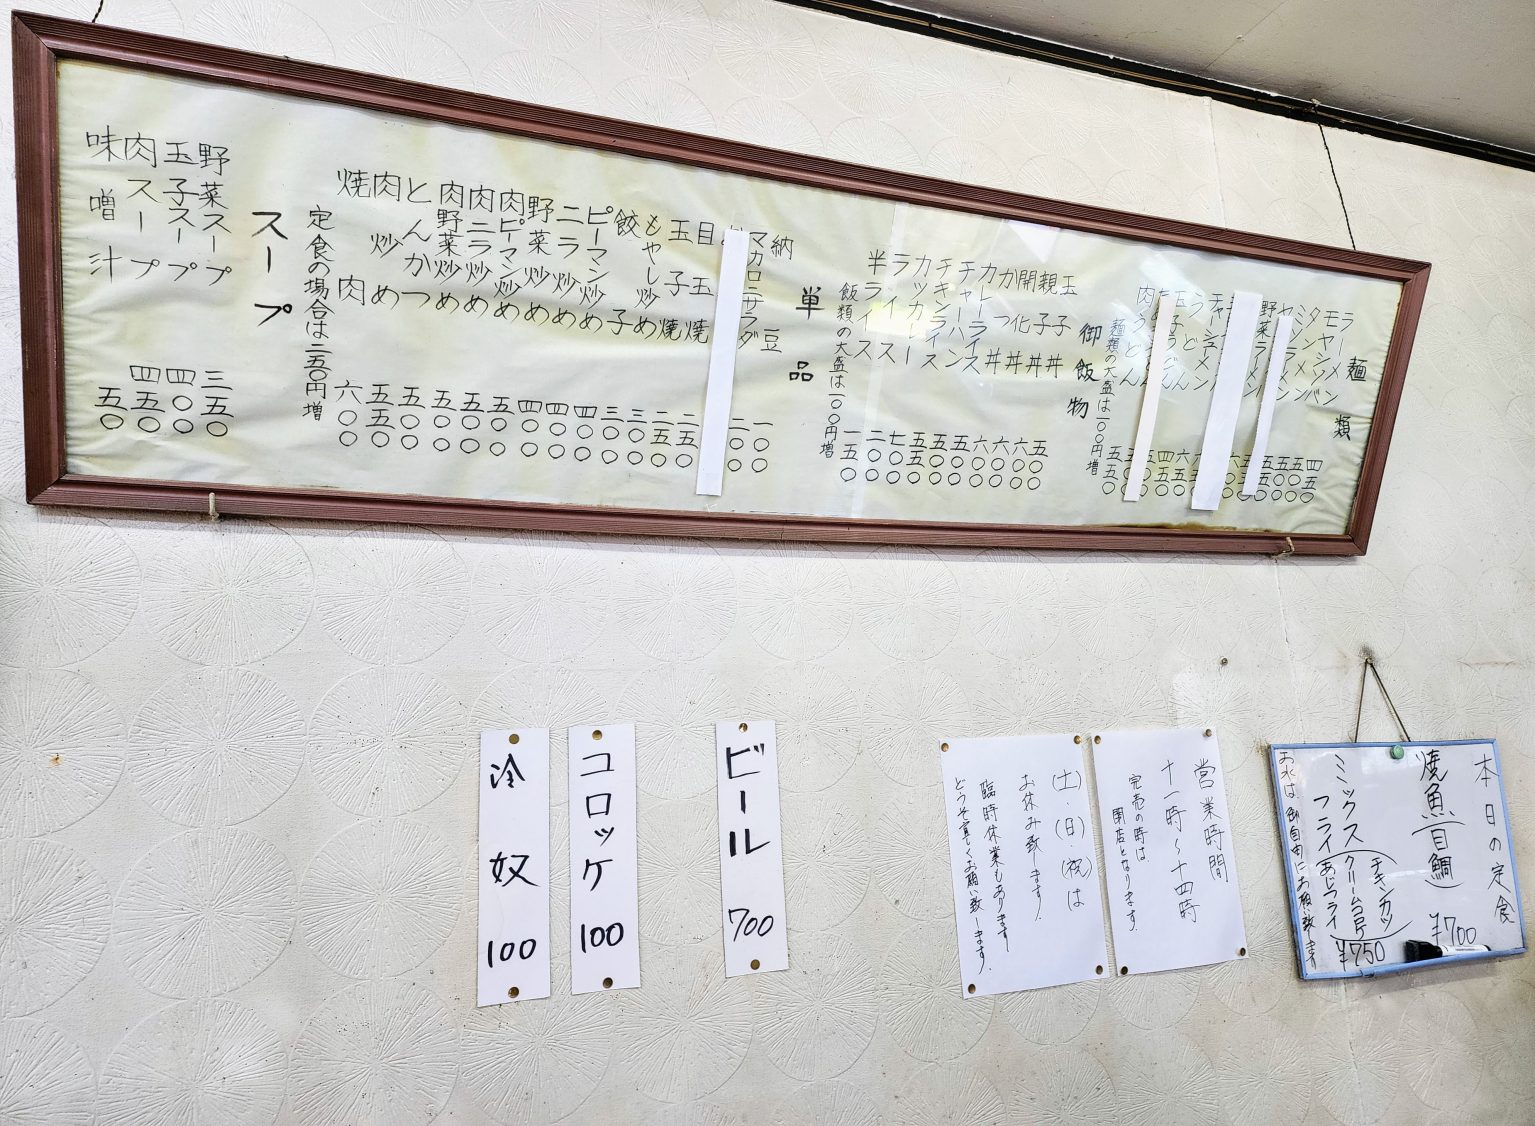 麺類
ラーメン 四五〇
モヤシソバ 五〇〇
タンメン 五〇〇
野菜ラーメン
チャーシューメン
うどん 四五〇
玉子うどん
肉うどん 五五〇
麺類の大盛は一〇〇円増
御飯物
玉子丼 五〇〇
親子丼 六〇〇
開化丼 六〇〇
かつ丼 六〇〇
カレーライス 五〇〇
チャーハン 五〇〇
チキンライス 五五〇
カツカレー 七〇〇
ライス 二〇〇
半ライス 一五〇
飯類の大盛は一〇〇円増
単品
納豆 一〇〇
マカロニサラダ 二〇〇
目玉焼 二五〇
玉子焼 二五〇
もやし炒め 三〇〇
餃子 三〇〇
ピーマン炒め 四〇〇
ニラ炒め 四〇〇
野菜炒め 四〇〇
肉ピーマン炒め 五〇〇
肉ニラ炒め 五〇〇
肉野菜炒め 五〇〇
とんかつ 五〇〇
肉炒め 五五〇
焼肉 六〇〇
定食の場合は二五〇円増
スープ
野菜スープ 三五〇
玉子スープ 四〇〇
肉スープ 四五〇
味噌汁 五〇
本日の定食
焼魚(目鯛) ¥700
ミックスフライ(チキンカツ クリームコロッケ あじフライ) ¥750
お水は御自由にお願い致します
営業時間
十一時～十四時
完売の時は
閉店となります。
(土)・(日)・(祝)は
お休み致します。
臨時休業もあります
どうぞ宜しくお願い致します。
ビール 700
コロッケ 100
冷奴 100